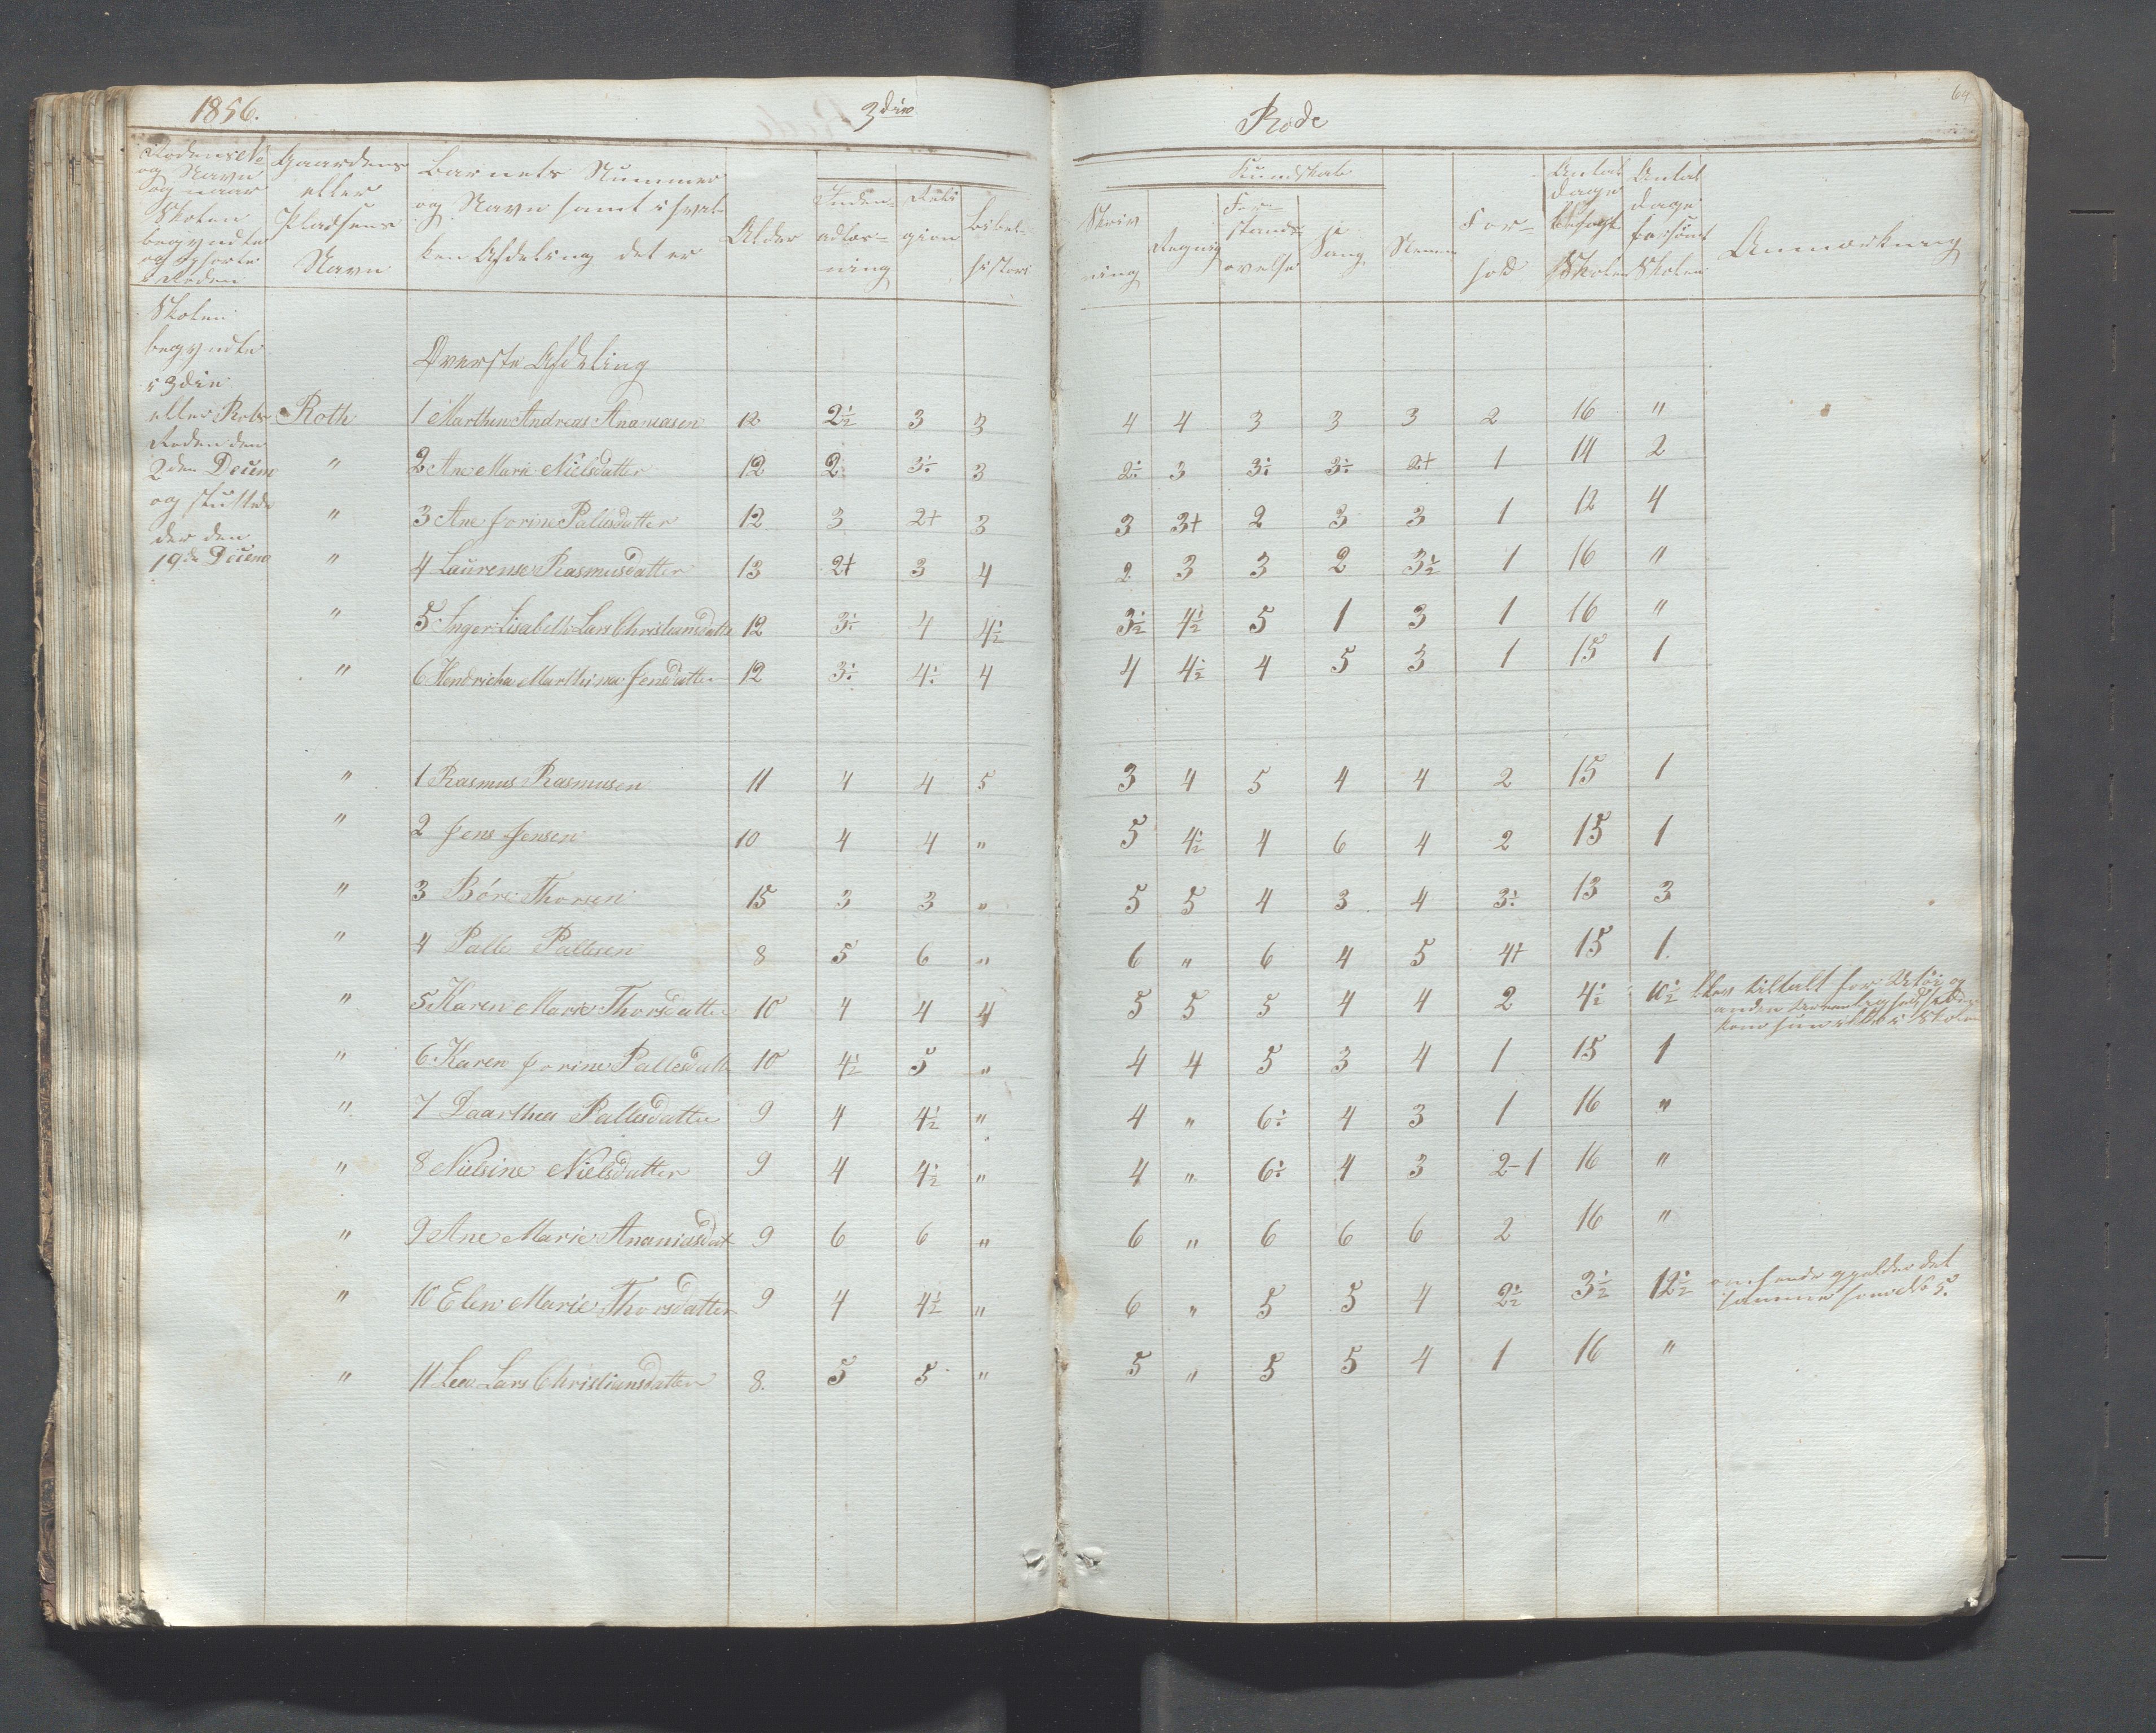 1856. 3die Rode 64
Rodens No og Navn og naar Skolen begyndte og ophørte i Roden
Gaardens eller Pladsens Navn
Barnets Nummer og Navn samt i hvilken Afdeling det er
Alder
Indenadlæsning
Religion
Bibelhistori
Kundskab
Skrivning
Regning
Forstandsøvelse
Sang
Nemme
Forhold
Antal dage besøgt Skolen
Antal dage forsømt Skolen
Anmærkning
Skolen
begyndte
i 3die
eller
Roden den
2den Decem
og sluttede
der den
19de Decem
Øverste Afdeling
Roth 1 Marthin Andreas Ananiasen 12 2½ 3 3 4 4 3 3 3 2 16 "
" 2 Ane Marie Nielsdatter 12 2 3÷ 3 2÷ 3 3÷ 3÷ 2+ 1 14 2
" 3 Ane Jorine Pallesdatter 12 3 2+ 3 3 3+ 2 3 3 1 12 4
" 4 Laurense Rasmusdatter 13 2+ 3 4 2 3 3 2 3½ 1 16 "
" 5 Inger Lisabeth Lars Christiansdatter 12 3÷ 4 4½ 3½ 4½ 5 1 3 1 16 "
" 6 Hendricha Marthina Jensdatter 12 3÷ 4÷ 4 4 4½ 4 5 3 1 15 1
" 1 Rasmus Rasmusen 11 4 4 5 3 4 5 4 4 2 15 1
" 2 Jens Jensen 10 4 4 " 5 4½ 4 6 4 2 15 1
" 3 Børe Thorsen 15 3 3 " 5 5 4 3 4 3÷ 13 3
" 4 Palle Pallesen 8 5 6 " 6 " 6 4 5 4+ 15 1
" 5 Karen Marie Thorsdatter 10 4 4 4 5 5 5 4 4 2 4½ 10½ blev tiltalt for Utøi og
anden siden
kom hun ikke i Skolen
" 6 Karen Jorine Pallesdatt 10 4½ 5 " 4 4 5 3 4 1 15 1
" 7 Daarthea Pallesdatter 9 4 4½ " 4 " 6÷ 4 3 1 16 "
" 8 Nielsine Nielsdatter 9 4 4½ " 4 " 6÷ 4 3 2-1 16 "
" 9 Ane Marie Ananiasdat 9 6 6 " 6 " 6 6 6 2 16 "
" 10 Elen Marie Thorsdatter 9 4 4½ " 6 " 5 5 4 2½ 3½ 12½ om hende gjelder det
samme som No 5.
" 11 Lea Lars Christiansdatter 8. 5 5 " 5 " 5 5 4 1 16 "